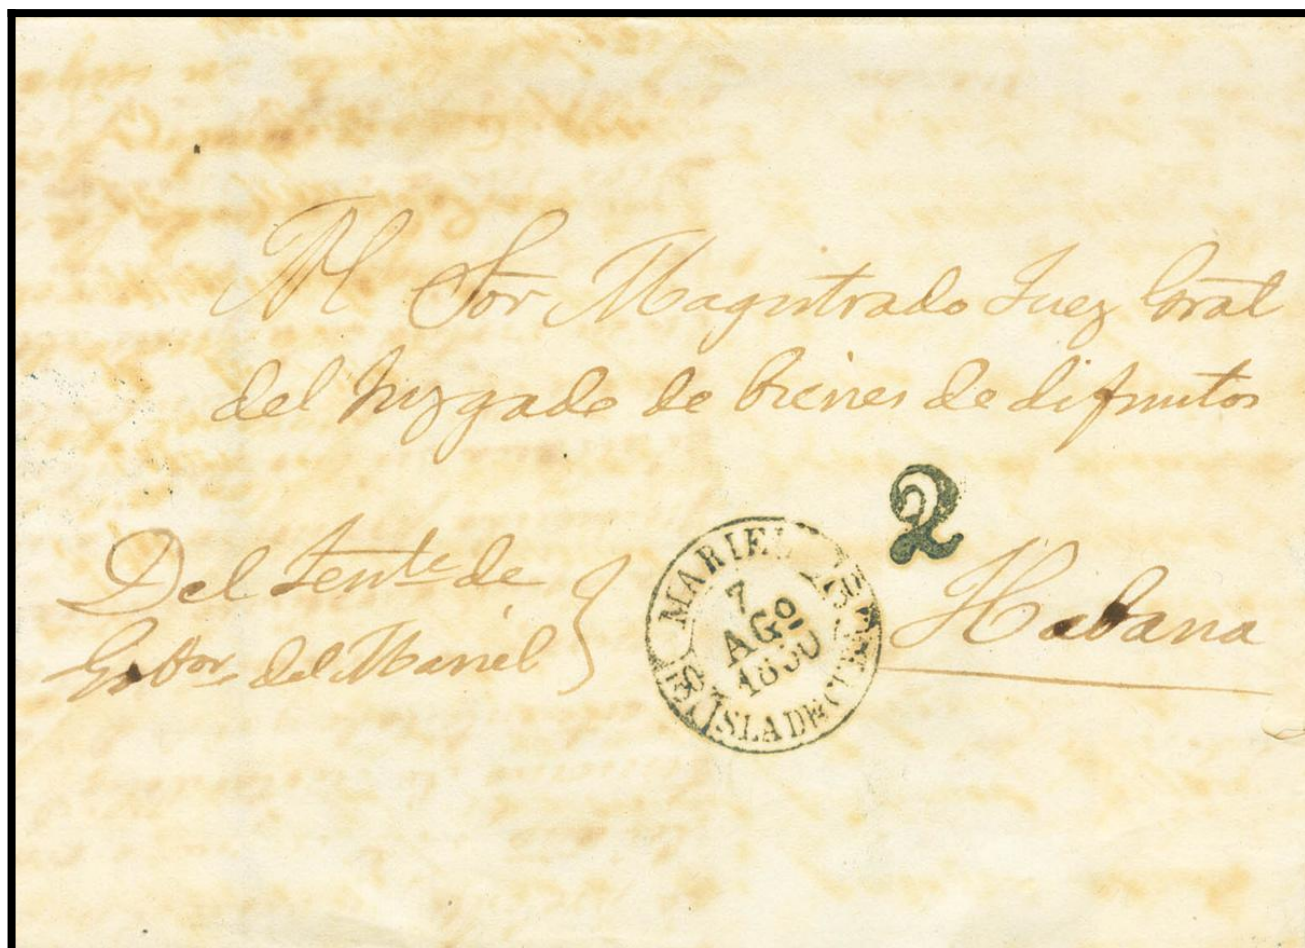 Al Sor Magistrado Juez Gral
del Juzgado de bienes de difuntos
2
Del Tente de
Gobor del Mariel
MARIEL
7
AGO
1850
ISLA DE CUBA
Habana